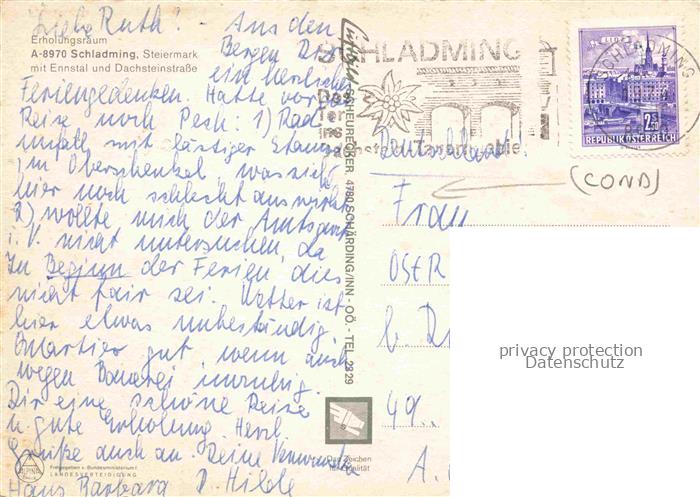 Liebe Ruth! - Aus den
Erholungsraum
A-8970 Schladming, Steiermark
mit Ennstal und Dachsteinstraße
Bergen Dir
ein herzliches
Feriengedenken. Hatte vor
Reise noch Pech: 1) Rad
unfall mit lästiger Stauung
im Oberschenkel, was sich
hier noch schlecht auswirkt
2) wollte mich der Amtsarzt
i. V. nicht untersuchen, da
zu Beginn der Ferien, dies
nicht fair sei. Wetter ist
hier etwas unbeständig
Quartier gut, wenn auch
wegen Bauerei unruhig.
Dir eine schöne Reise
u. gute Erholung Herzl.
Grüße auch an Deine
Hans Barbara Hilde
ALPINA
Freigegeben v. Bundesministerium f.
LANDESVERTEIDIGUNG
SCHEURECKER, 4780 SCHÄRDING/INN - OÖ. - TEL. 2329
Das Zeichen
für Qualität
SCHLADMING
Dachstein-Tauern
SCHLADMING
2.50
REPUBLIK ÖSTERREICH
Deutschland
(COND)
Frau
OSTR
b. D
49..
A.
privacy protection
Datenschutz